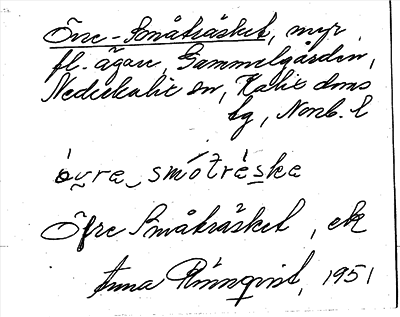 Övre-Småträsket, myr,
fl. ägare, Gammelgården,
Nederkalix sn, Kalix dms
tg, Norrb. l
òvre smótrèske
Öfre Småträsket, ek
Anna Rönnqvist, 1951